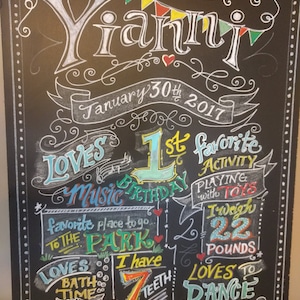 Yianni
January 30th 2017
LOVES
Music
1st
BIRTHDAY
favorite
ACTIVITY
PLAYING
with TOYS
favorite place to go
TO THE PARK
I weigh
22
POUNDS
LOVES
BATH
TIME
I have
7 TEETH
LOVES TO
DANCE